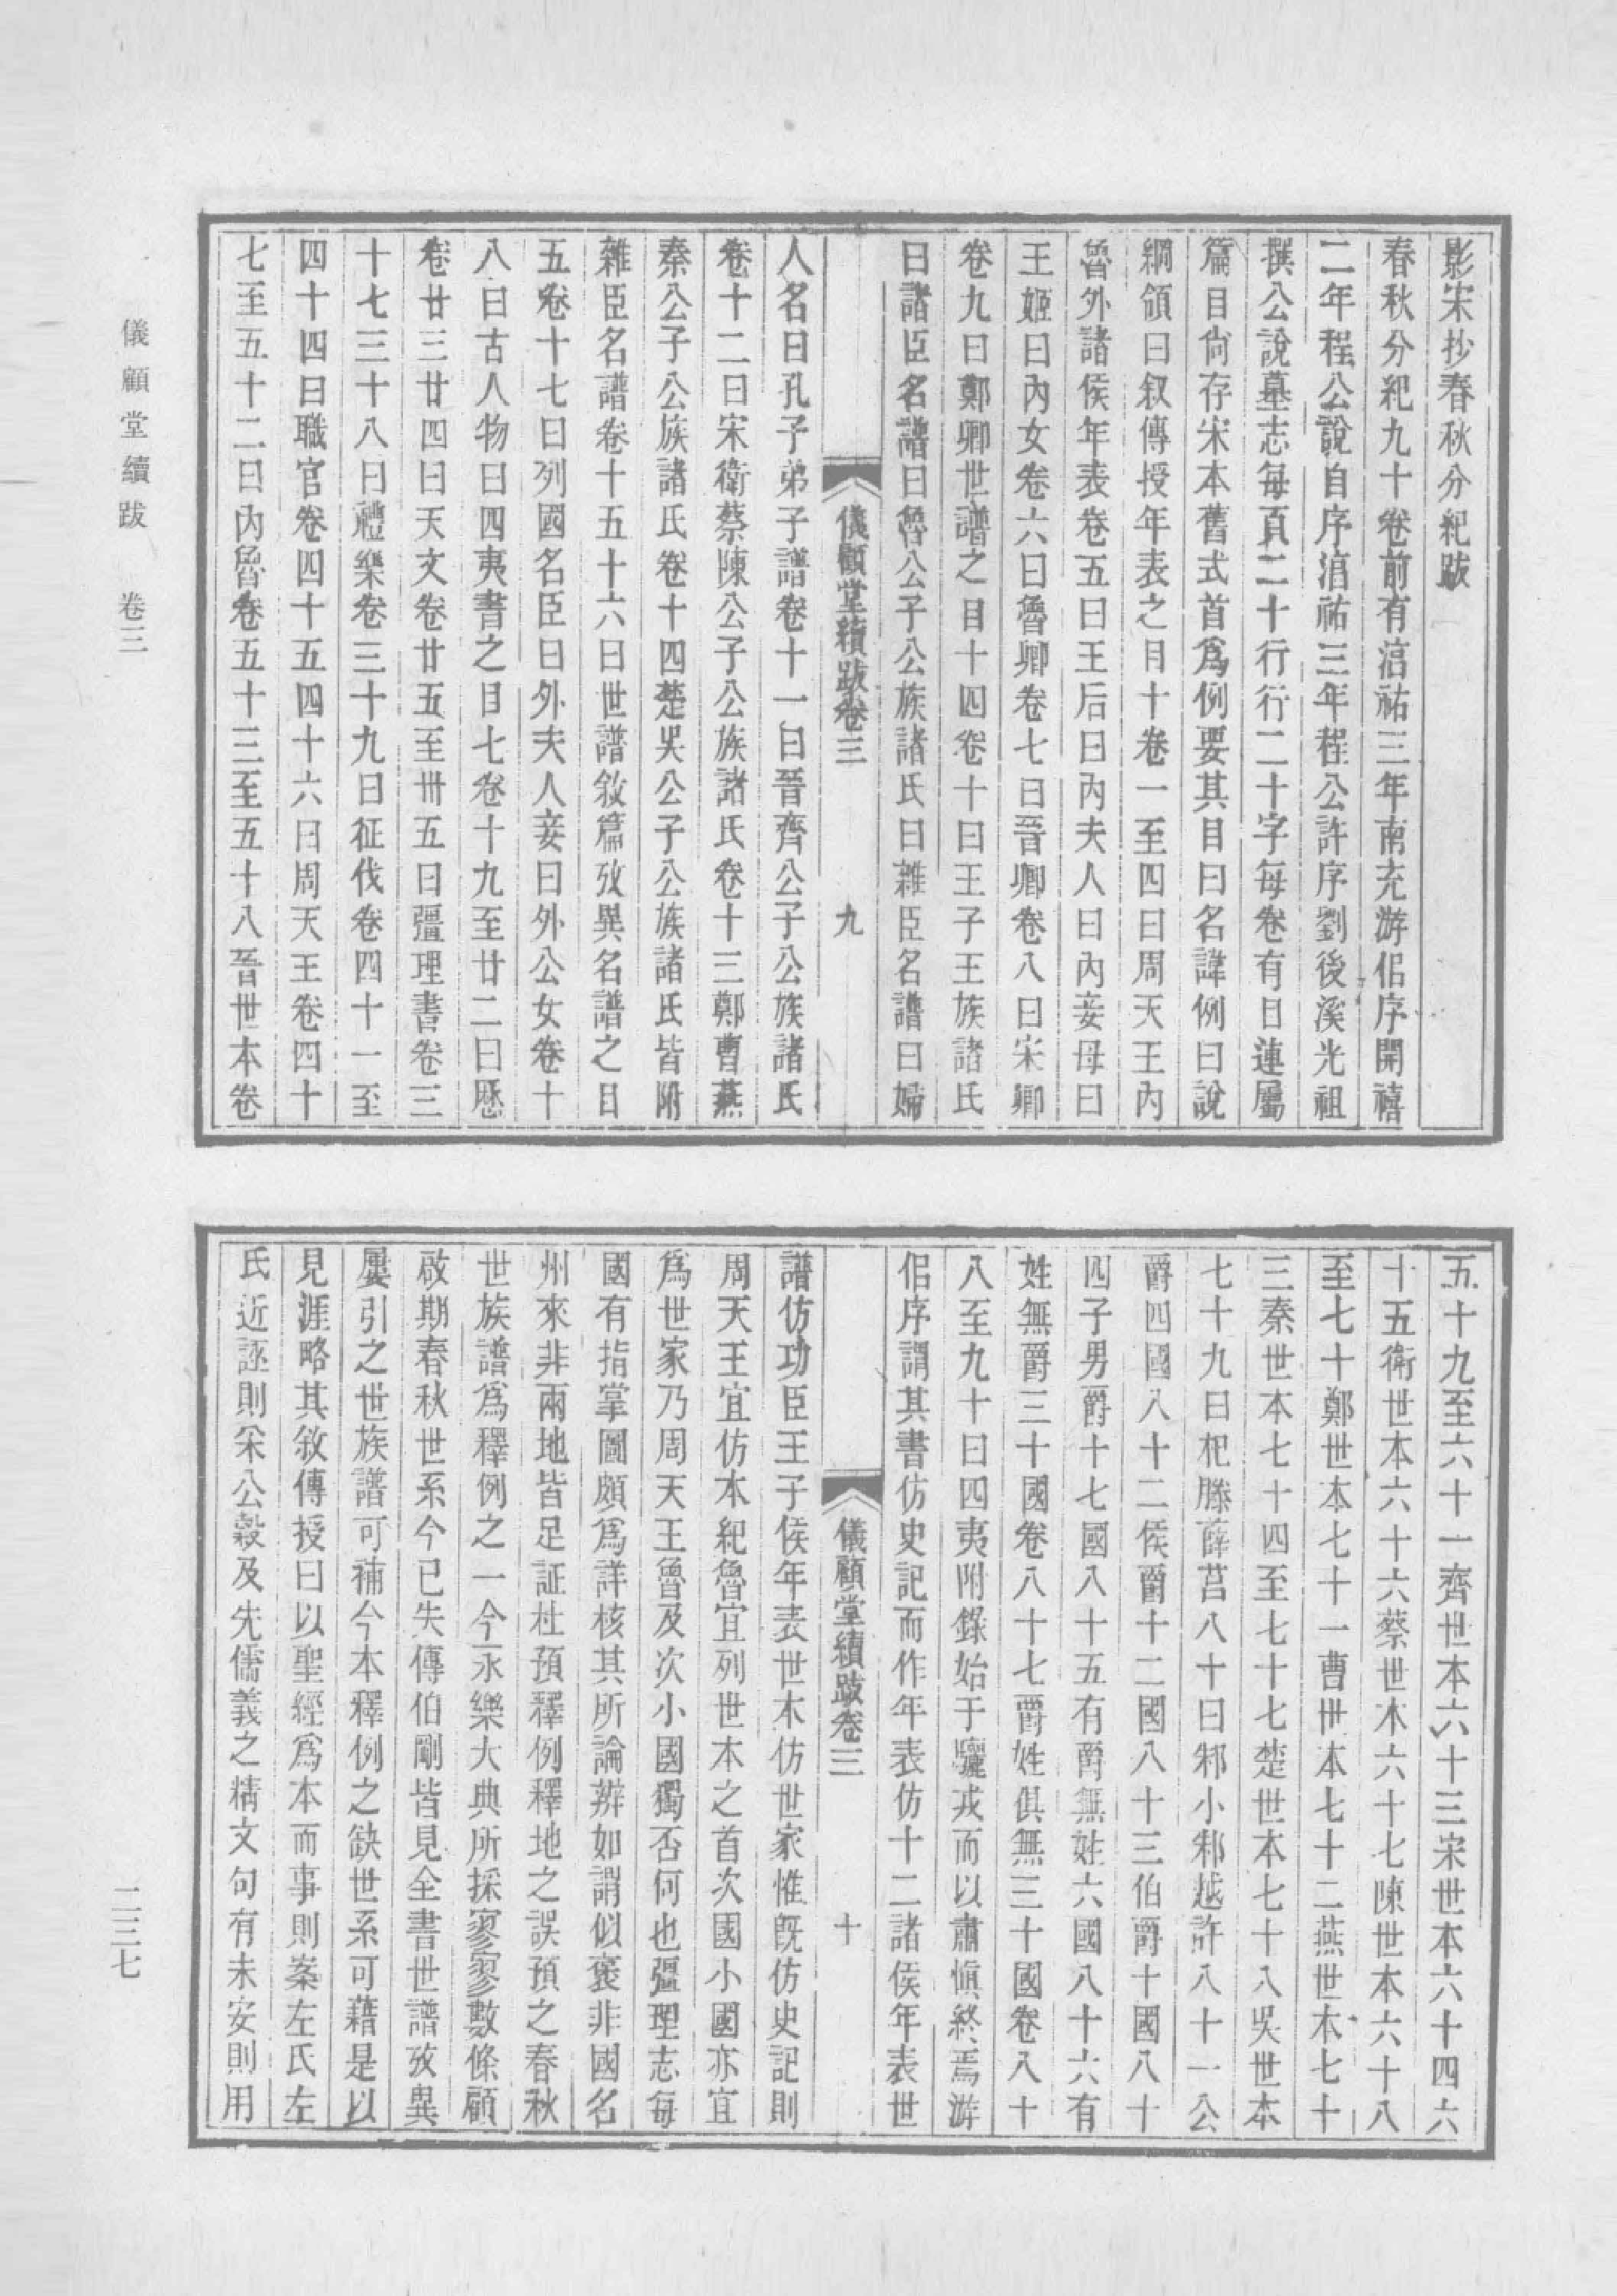 影宋抄春秋分紀跋
春秋分紀九十卷前有淳祐三年南充游侣序開禧
二年程公說自序淳祐三年程公許序劉後溪光祖
撰公說墓志每頁二十行行二十字每卷有目連屬
篇目尙存宋本舊式首爲例要其目曰名諱例曰說
綱領曰叙傳授年表之目十卷一至四曰周天王內
魯外諸侯年表卷五曰王后曰內夫人曰內妾母曰
王姬曰內女卷六曰魯卿卷七曰晉卿卷八曰宋卿
卷九曰鄭卿世譜之目十四卷十曰王子王族諸氏
曰諸臣名譜曰魯公子公族諸氏曰雜臣名譜曰婦
儀顧堂續跋卷三 九
人名曰孔子弟子譜卷十一曰晉齊公子公族諸氏
卷十二曰宋衛蔡陳公子公族諸氏卷十三鄭曹燕
秦公子公族諸氏卷十四楚吳公子公族諸氏皆附
雜臣名譜卷十五十六曰世譜敘篇攷異名譜之目
五卷十七曰列國名臣曰外夫人妾曰外公女卷十
八曰古人物曰四夷書之目七卷十九至廿二曰厯
卷廿三廿四曰天文卷廿五至卅五曰疆理書卷三
十七三十八曰禮樂卷三十九曰征伐卷四十一至
四十四曰職官卷四十五四十六曰周天王卷四十
七至五十二曰內魯卷五十三至五十八晉世本卷
五十九至六十一齊世本六十三宋世本六十四六
十五衛世本六十六蔡世本六十七陳世本六十八
至七十鄭世本七十一曹世本七十二燕世本七十
三秦世本七十四至七十七楚世本七十八吳世本
七十九曰杞滕薛莒八十曰邾小邾越許八十一公
爵四國八十二侯爵十二國八十三伯爵十國八十
四子男爵十七國八十五有爵無姓六國八十六有
姓無爵三十國卷八十七爵姓俱無三十國卷八十
八至九十曰四夷附錄始于驪戎而以肅慎終焉游
侣序謂其書仿史記而作年表仿十二諸侯年表世
儀顧堂續跋卷三 十
譜仿功臣王子侯年表世本仿世家惟旣仿史記則
周天王宜仿本紀魯宜列世本之首次國小國亦宜
爲世家乃周天王魯及次小國獨否何也疆理志每
國有指掌圖頗爲詳核其所論辨如謂似褒非國名
州來非兩地皆足証杜預釋例釋地之誤預之春秋
世族譜爲釋例之一今永樂大典所採寥寥數條顧
啟期春秋世系今已失傳伯剛皆見全書世譜攷異
屢引之世族譜可補今本釋例之缺世系可藉是以
見涯略其敘傳授曰以聖經爲本而事則案左氏左
氏近誣則采公穀及先儒義之精文句有未安則用
儀顧堂續跋 卷三
二三七